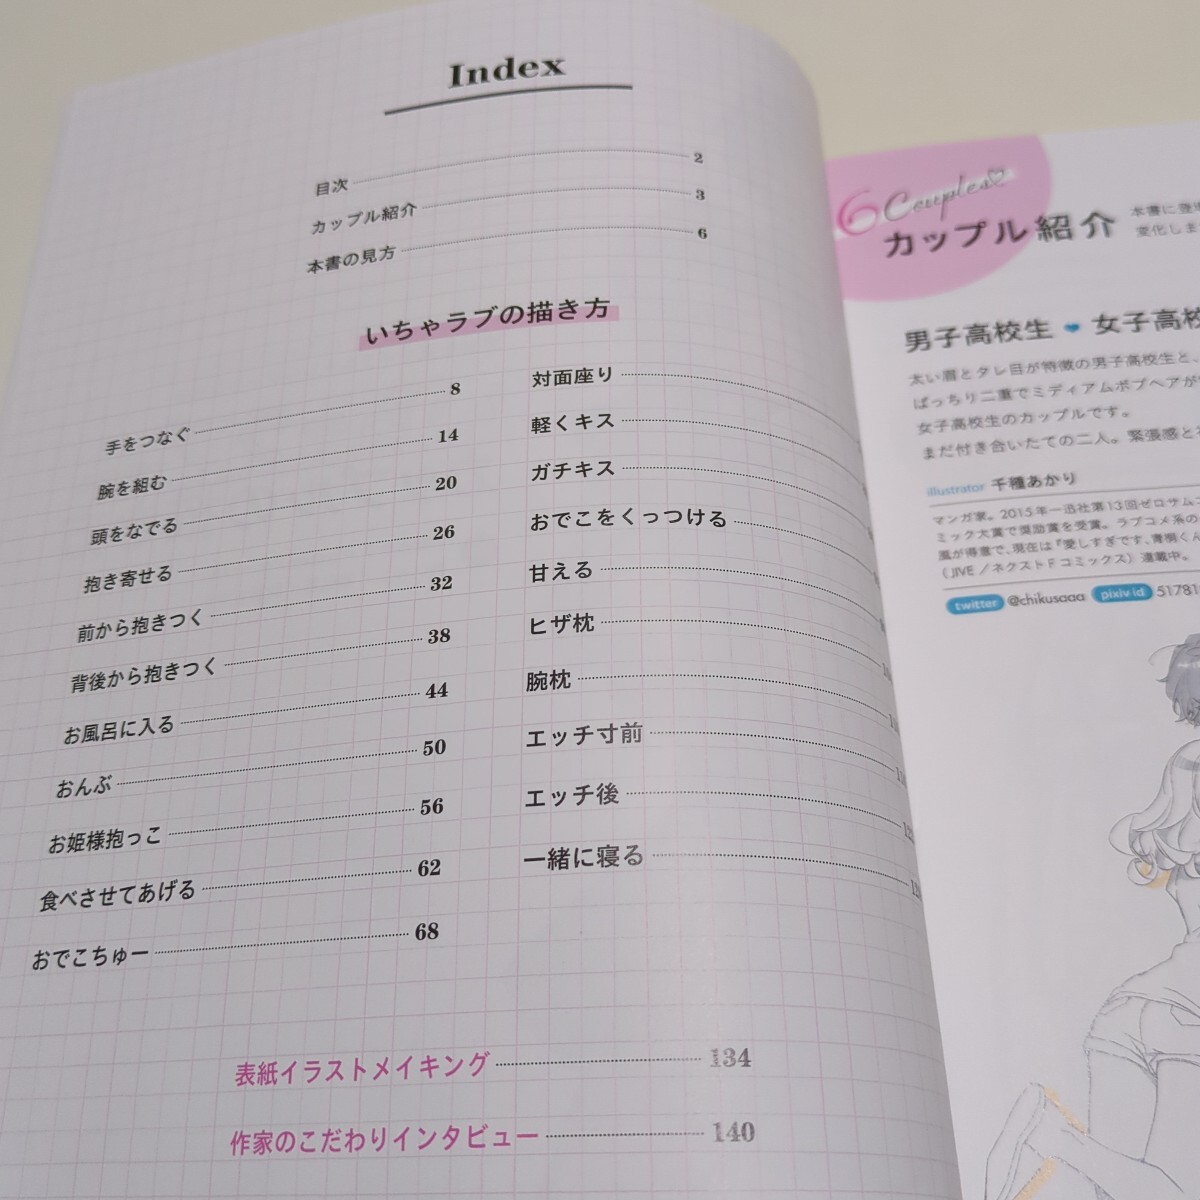 Index
目次 2
カップル紹介 3
本書の見方 6
いちゃラブの描き方
手をつなぐ 8
腕を組む 14
頭をなでる 20
抱き寄せる 26
前から抱きつく 32
背後から抱きつく 38
お風呂に入る 44
おんぶ 50
お姫様抱っこ 56
食べさせてあげる 62
おでこちゅー 68
対面座り
軽くキス
ガチキス
おでこをくっつける
甘える
ヒザ枕
腕枕
エッチ寸前
エッチ後
一緒に寝る
表紙イラストメイキング 134
作家のこだわりインタビュー 140
6 Couples
カップル紹介
本書に登
変化しま
男子高校生 女子高校
太い眉とタレ目が特徴の男子高校生と、
ぱっちり二重でミディアムボブヘアが
女子高校生のカップルです。
まだ付き合いたての二人。緊張感と
illustrator 千種あかり
マンガ家。2015年一迅社第13回ゼロサムコ
ミック大賞で奨励賞を受賞。ラブコメ系の
風が得意で、現在は『愛しすぎです、青桐くん
(JIVE／ネクストFコミックス) 連載中。
twitter @chikusaaa pixiv.id 51781